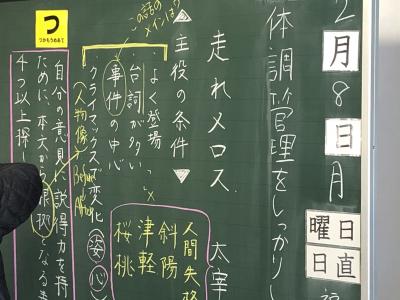 2月8日月
曜日
日直
体調管理をしっかりし
走れメロス 太宰
▲主役の条件▼
この話のメインは?
よく登場
台詞が多い
事件の中心
クライマックスで変化(姿)(心)
(人物像)Before After
人間失格
斜陽
津軽
桜桃
つ
つかもうめあて
自分の意見に説得力を持
ために、本文から根拠となる
4つ以上探し